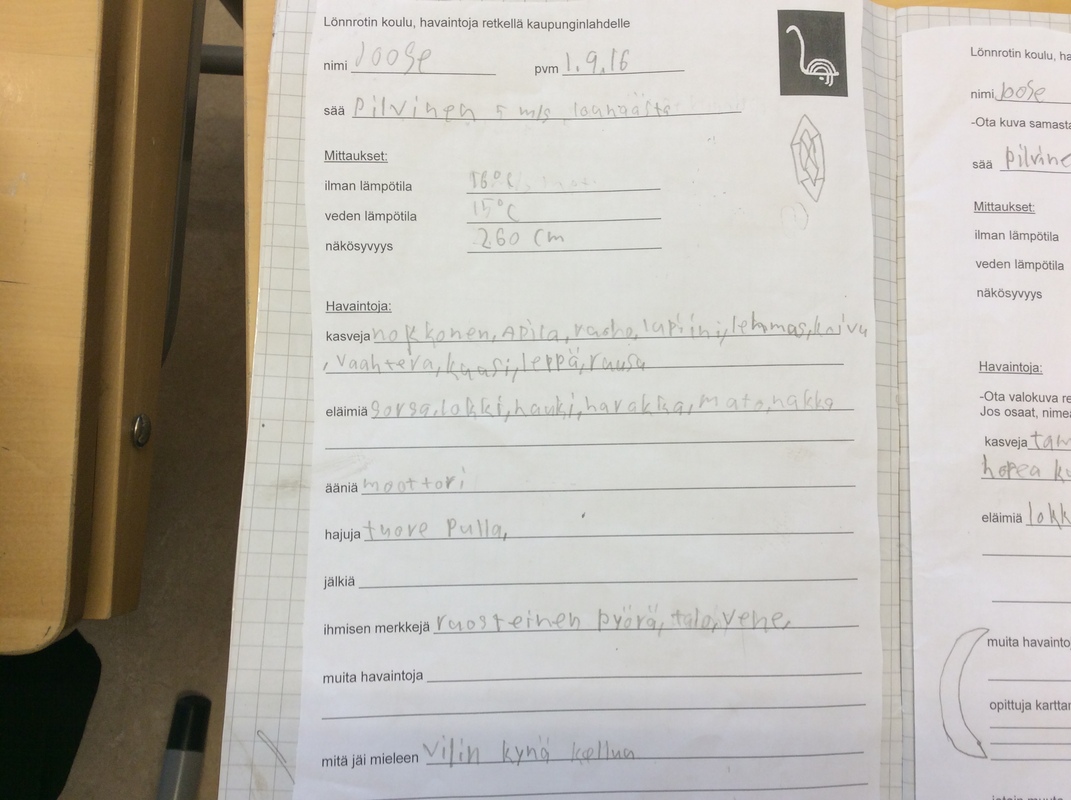 Lönnrotin koulu, havaintoja retkellä kaupunginlahdelle
nimi Joose pvm 1.9.16
sää pilvinen 5 m/s
Mittaukset:
ilman lämpötila 16°C
veden lämpötila 15°C
näkösyvyys 260 cm
Havaintoja:
kasveja nokkonen, Apila, lupiini,
, vaahtera, leppä,
eläimiä sorsa, lokki, hauki, harakka, mato, nakka
ääniä moottori
hajuja tuore pulla,
jälkiä
ihmisen merkkejä ruosteinen pyörä, talo, vene,
muita havaintoja
mitä jäi mieleen vilin kynä kelluu
Lönnrotin koulu, ha
nimi Joose
-Ota kuva samasta
sää pilvine
Mittaukset:
ilman lämpötila
veden lämpötila
näkösyvyys
Havaintoja:
-Ota valokuva re
Jos osaat, nimeä
kasveja tam
hopea ku
eläimiä lokk
muita havainto
opittuja karttan